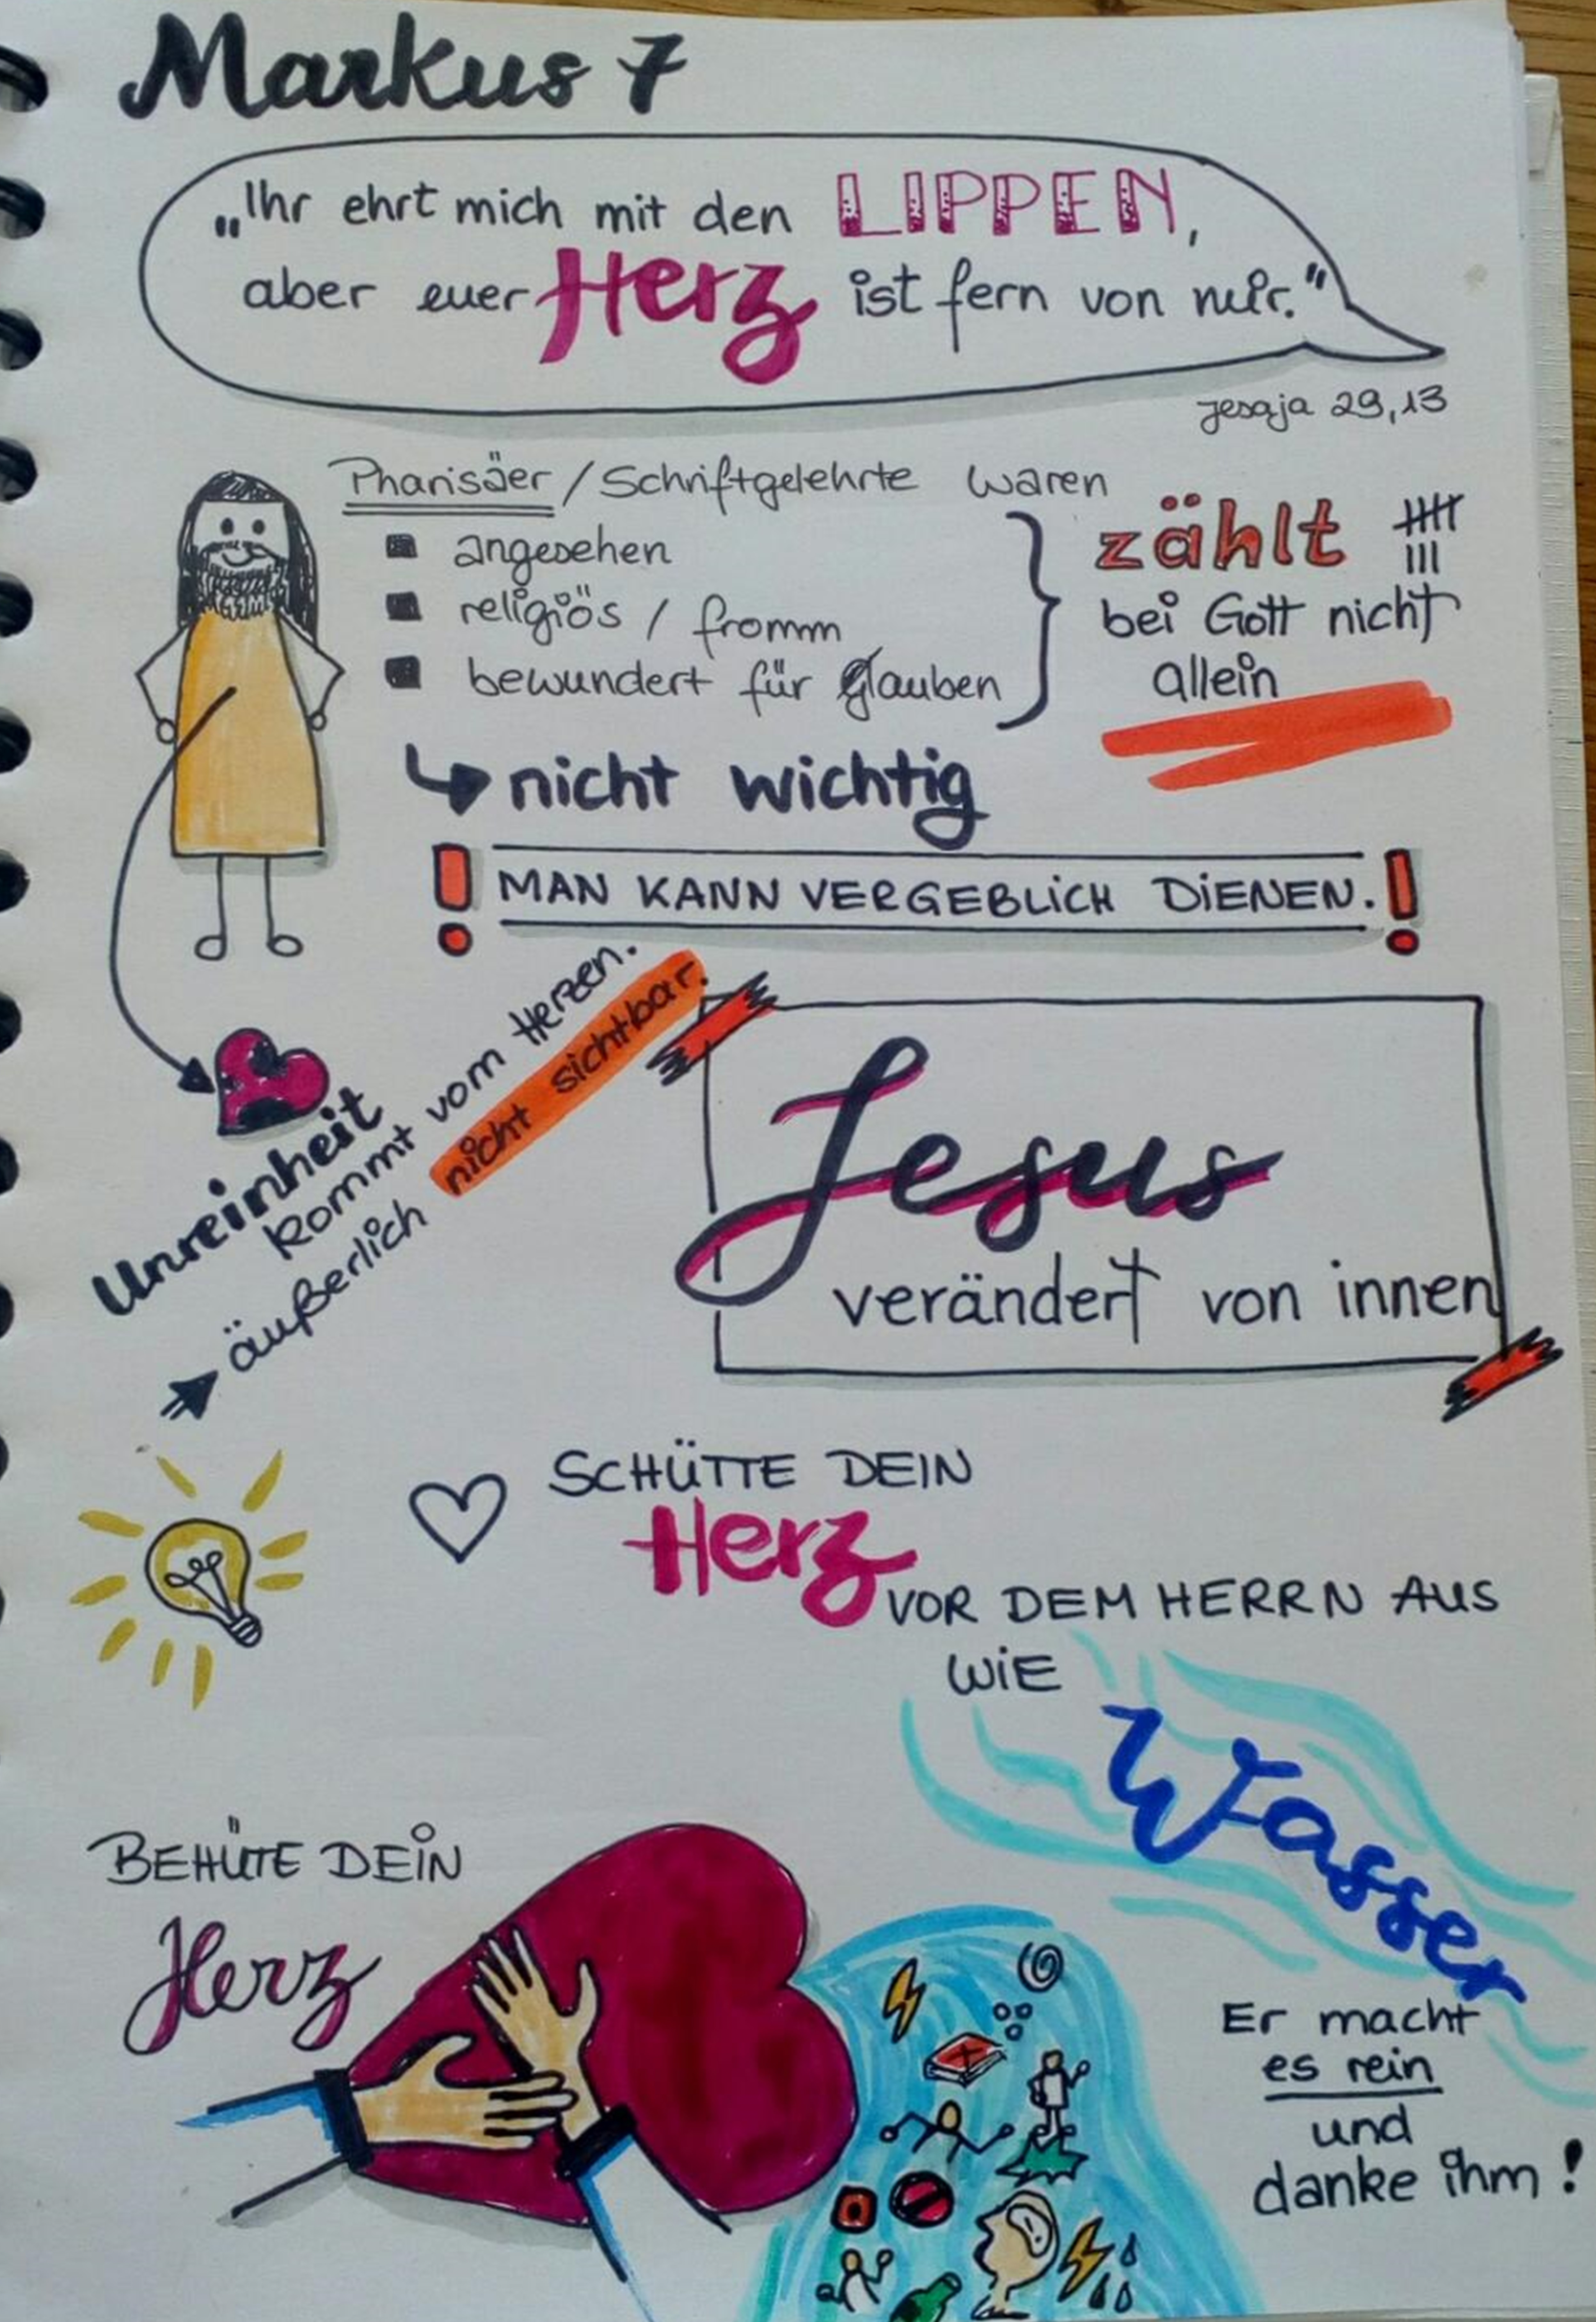 Markus 7
„Ihr ehrt mich mit den LIPPEN,
aber euer Herz ist fern von mir."
Jesaja 29,13
Pharisäer / Schriftgelehrte waren
angesehen
religiös / fromm
bewundert für Glauben
zählt
bei Gott nicht
allein
nicht wichtig
! MAN KANN VERGEBLICH DIENEN. !
Unreinheit
kommt vom Herzen.
äußerlich nicht sichtbar.
Jesus
verändert von innen
SCHÜTTE DEIN
Herz
VOR DEM HERRN AUS
WIE
Wasser
BEHÜTE DEIN
Herz
Er macht
es rein
und
danke ihm!